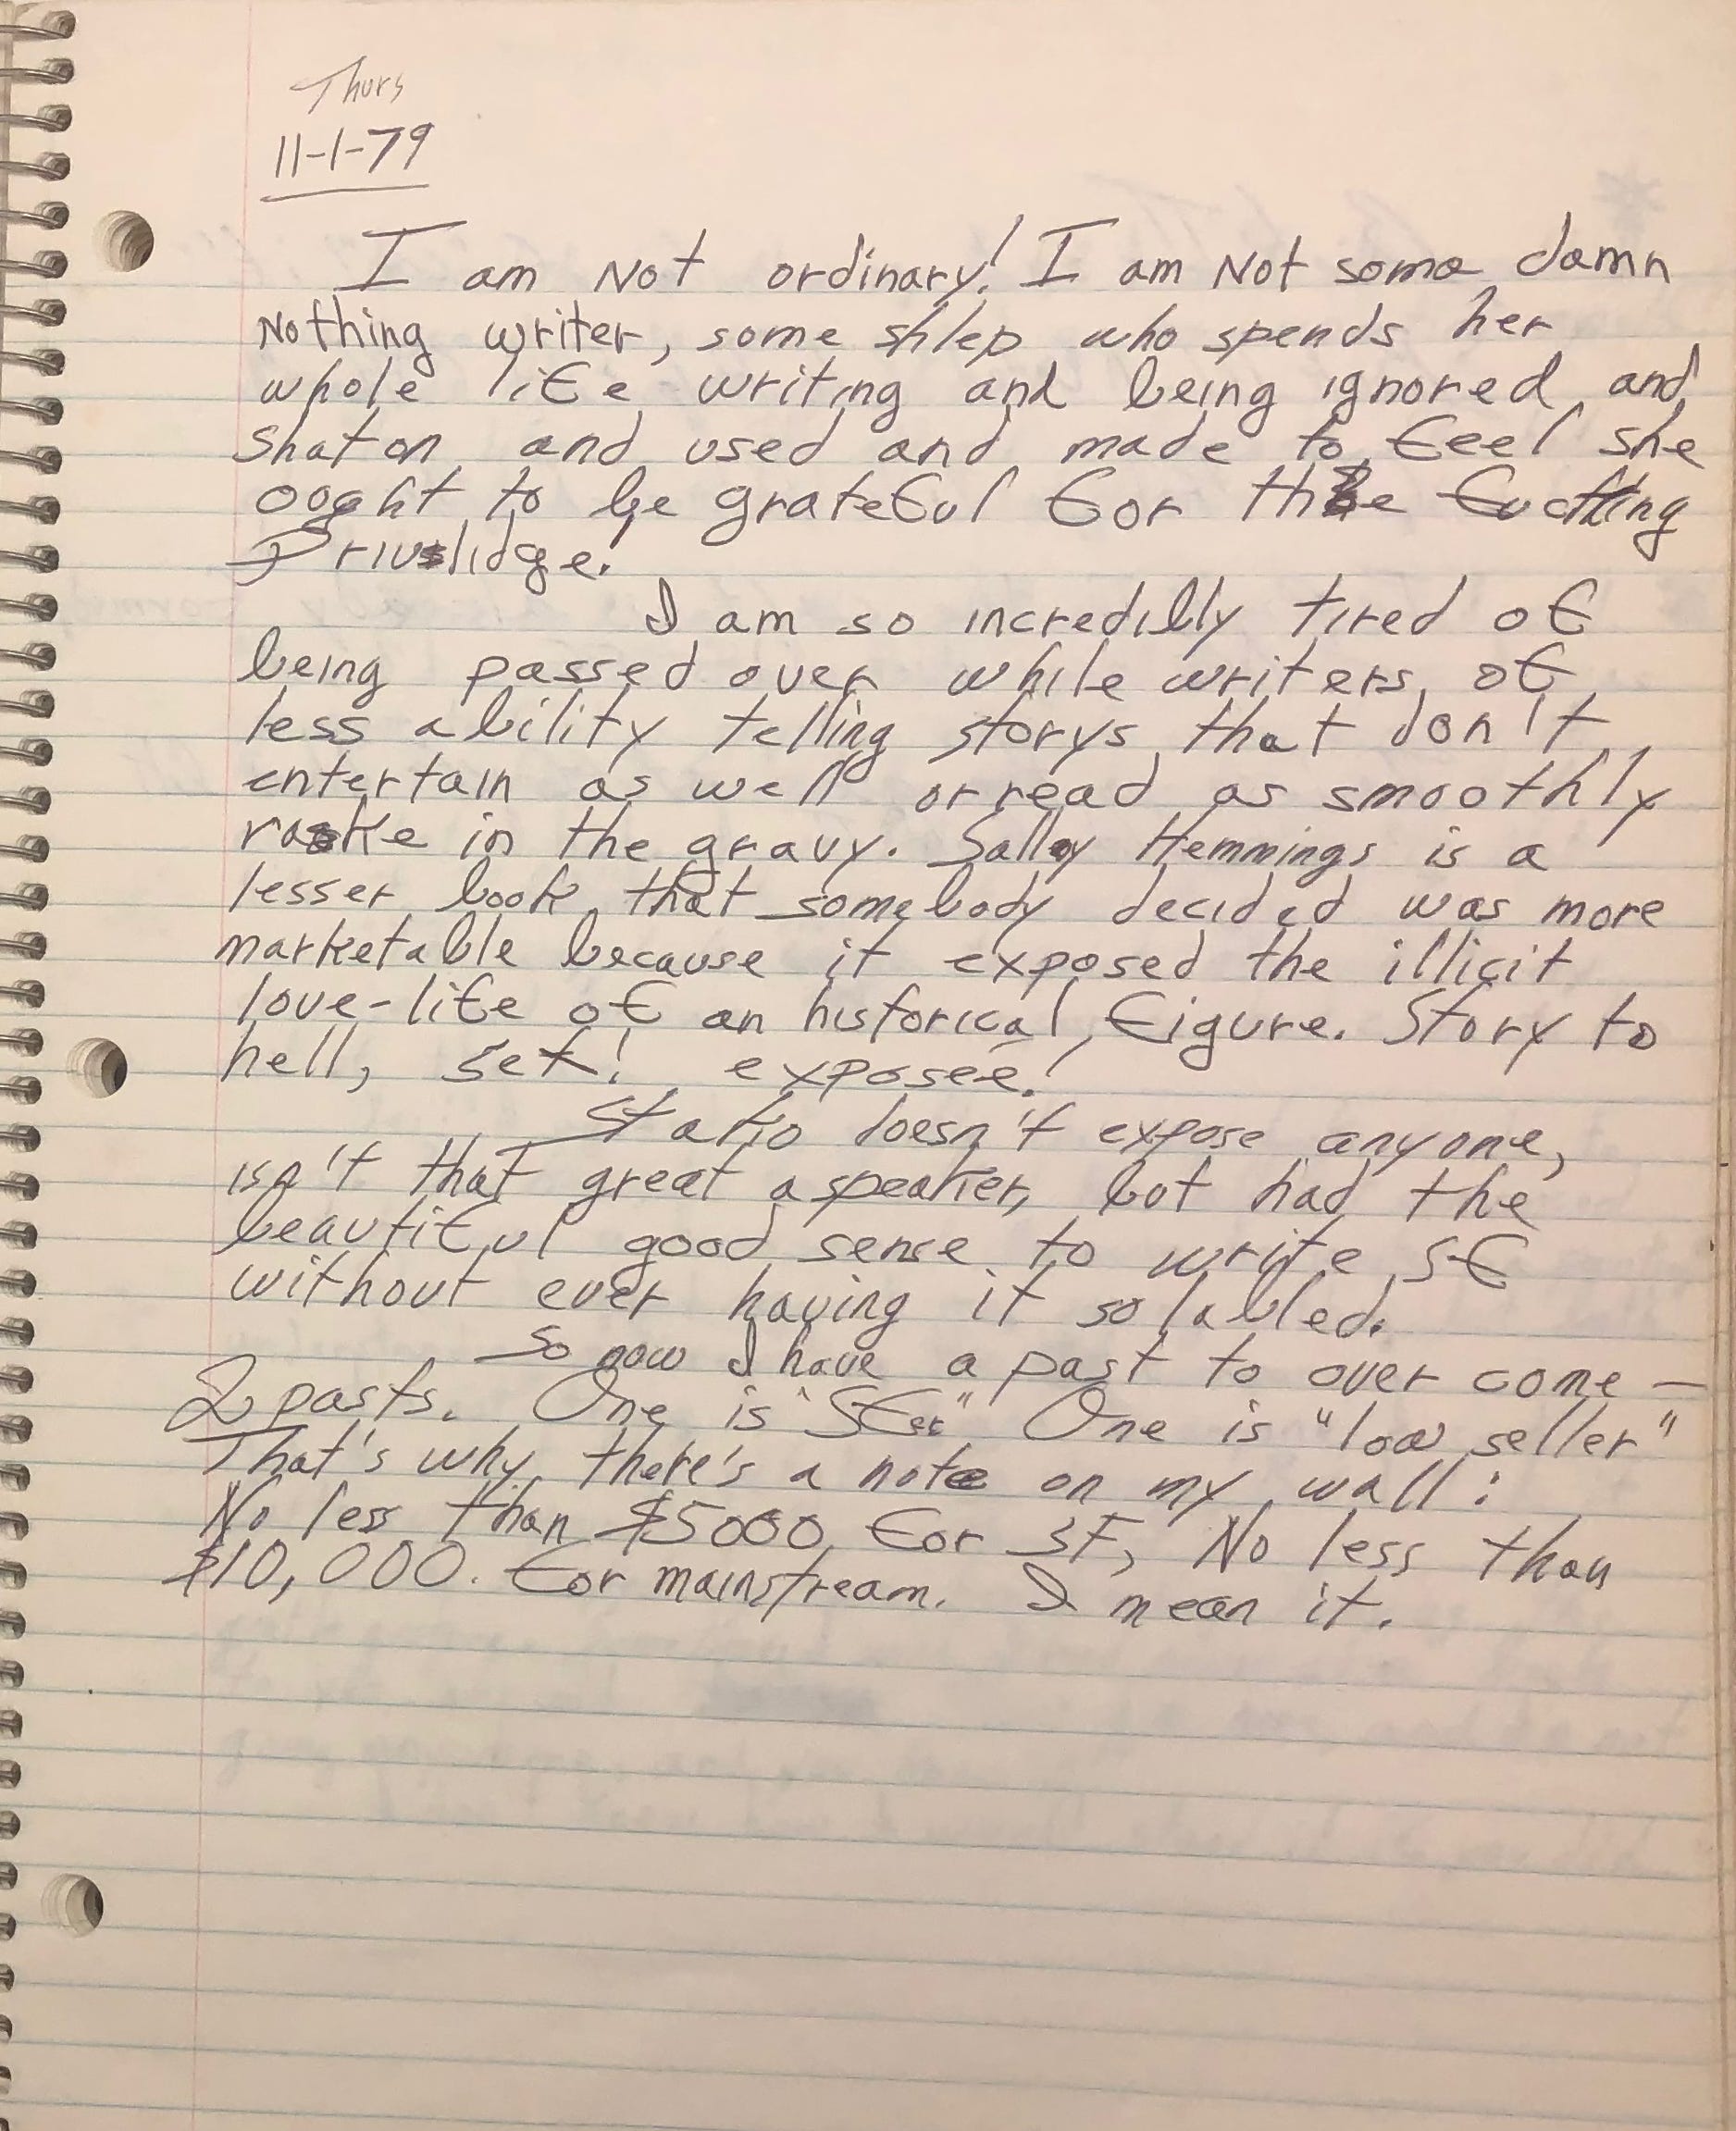 Thurs
11-1-79
I am Not ordinary! I am Not some damn
Nothing writer, some shlep who spends her
whole life writing and being ignored and
shat on and used and made to feel she
ought to be grateful for the fucking
Privilidge!
I am so incredilly tired of
being passed over while writers of
less ability telling storys that don't
entertain as well or read as smoothly
rake in the gravy. Sally Hemmings is a
lesser book that somebody decided was more
marketable because it exposed the illicit
love-life of an historical figure. Story to
hell, sex! exposeé!
doesn't expose anyone,
isn't that great a speaker, but had the
beautiful good sense to write SF
without ever having it so labled.
So now I have a past to over come —
2 pasts. One is "SFer" One is "low seller"
That's why there's a note on my wall:
No less than $5000 for SF, No less than
$10,000. for mainstream. I mean it.